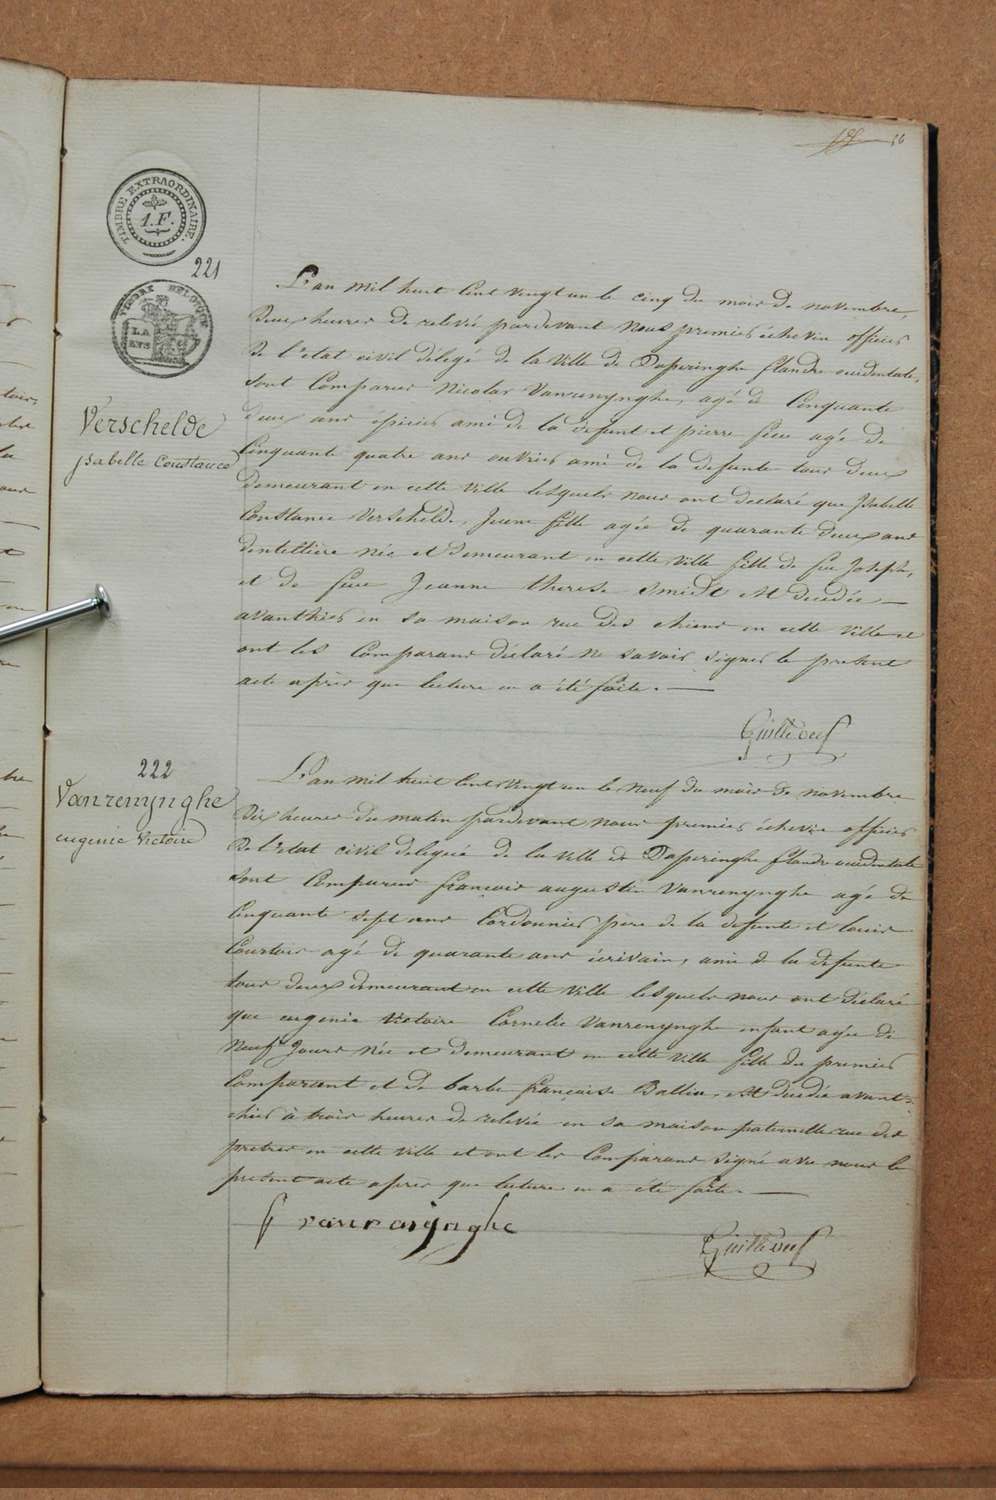 56
TIMBRE EXTRAORDINAIRE.
1.F.
221
TIMBRE BELGIQUE
LA
LYS
Verschelde
isabelle Constance
L'an mil huit Cent vingt un le cinq du mois de novembre,
Deux heures de relevée pardevant Nous premier échevin officier
De l'etat civil délégé de la Ville de Poperinghe flandre occidentale,
sont Comparus Nicolas Vanrenynghe, agé de Cinquante
deux ans épicier ami de la defunt et pierre feu agé de
Cinquante quatre ans ouvrier ami de la defunte tous deux
demeurant en cette Ville lesquels nous ont declaré que Isabelle
Constance Verschelde, Jeune fille agée de quarante deux ans
dentellière née et demeurant en cette Ville fille de feu Joseph,
et de feue Jeanne therese Smidt est decedée
avanthier en sa maison rue des chiens en cette Ville et
ont les Comparans déclaré ne savoir signer le present
acte après que lecture en a été faite.
222
Vanrenynghe
eugenie victoire
L'an mil huit Cent vingt un le neuf du mois de novembre
Dix heures du matin pardevant nous premier échevin officier
De l'etat civil delegué de la Ville de Poperinghe flandre occidentale
sont Comparus françois augustin Vanrenynghe agé de
Cinquante sept ans Cordonnier père de la defunte et louis
Courtois agé de quarante ans écrivain, ami de la defunte
tous deux demeurant en cette Ville lesquels nous ont déclaré
que eugenie Victoire Cornelie Vanrenynghe enfant agée de
Neuf Jours née et demeurant en cette Ville fille du premier
Comparant et de barbe françoise Ballieu, est decedée avant
hier à trois heures de relevée en sa maison paternelle rue des
pretres en cette Ville et ont les Comparans signé avec nous le
present acte apres que lecture en a été faite.